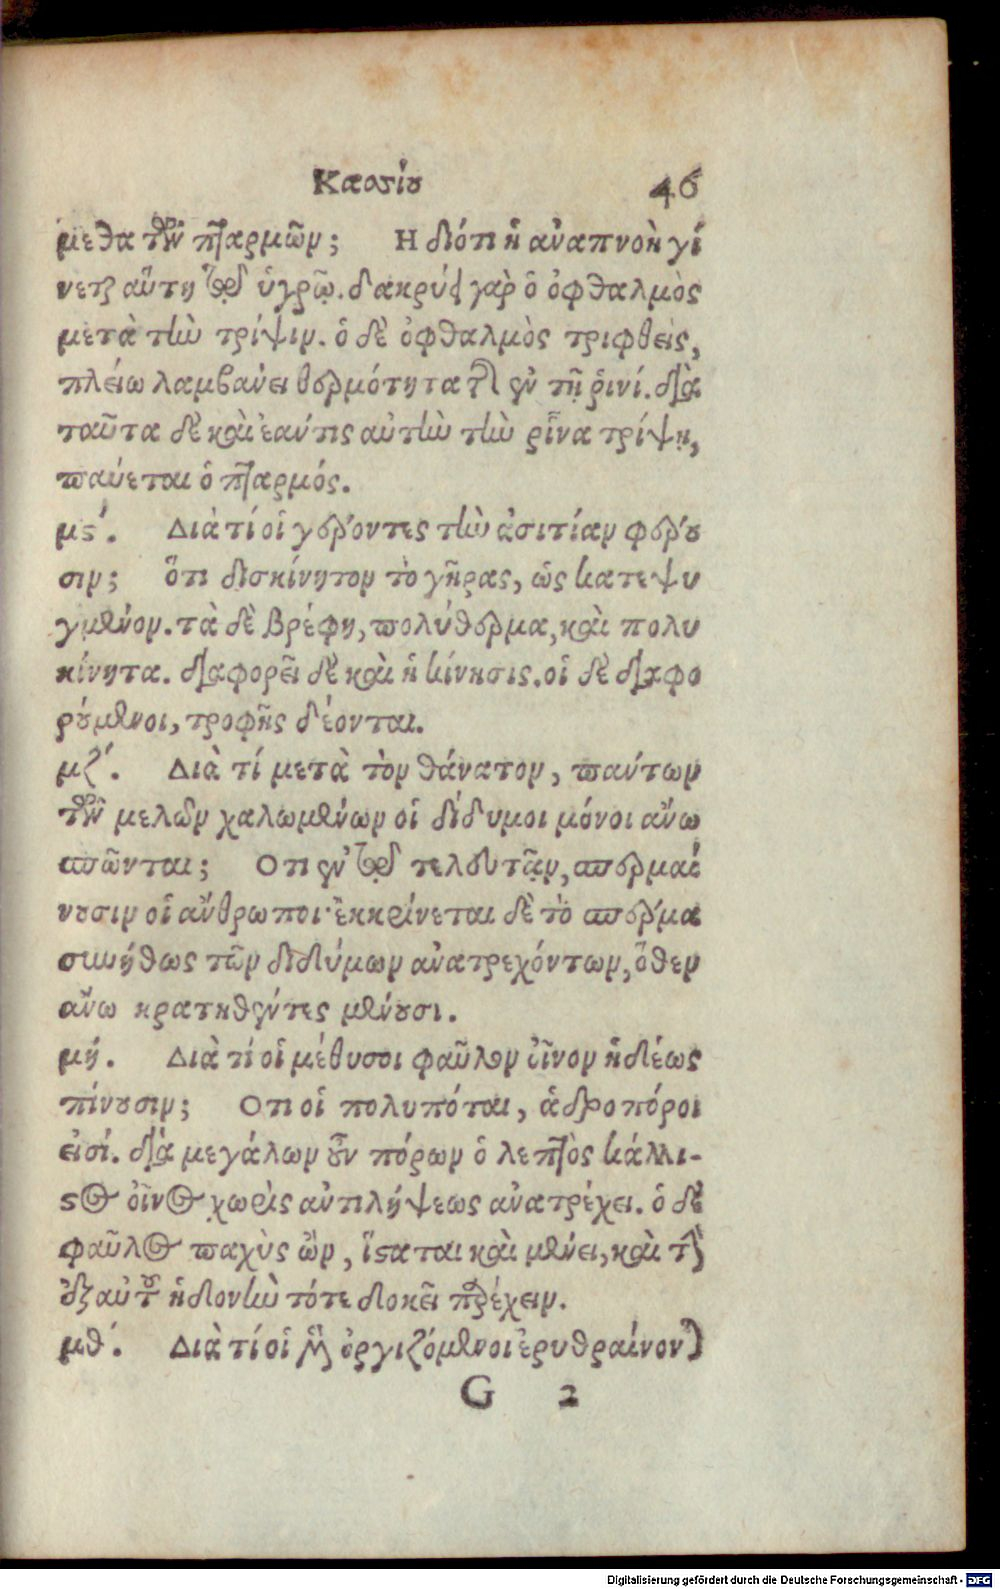 Κασσίου 46
μεθα τῶν πταρμῶν; Η διότι ἡ ἀναπνοὴ γί
νεται αὕτη τῷ ὑγρῷ. δακρύει γὰρ ὁ ὀφθαλμὸς
μετὰ τὴν τρίψιν. ὁ δὲ ὀφθαλμὸς τριφθεὶς,
πλείω λαμβάνει θερμότητα τῆς ἐν τῇ ῥινί. διὰ
ταῦτα δὲ καὶ ἐάν τις αὐτὴν τὴν ῥῖνα τρίψῃ,
παύεται ὁ πταρμός.
μϛ΄. Διὰ τί οἱ γέροντες τὴν ἀσιτίαν φέρου
σιν; ὅτι δισκίνητον τὸ γῆρας, ὡς κατεψυ
γμένον. τὰ δὲ βρέφη, πολύθερμα, καὶ πολυ
κίνητα. διαφορεῖ δὲ καὶ ἡ κίνησις. οἱ δὲ διαφο
ρούμενοι, τροφῆς δέονται.
μζ΄. Διὰ τί μετὰ τὸν θάνατον, πάντων
τῶν μελῶν χαλωμένων οἱ δίδυμοι μόνοι ἄνω
σπῶνται; Οτι ἐν τῷ τελευτᾷν, σπερμαί
νουσιν οἱ ἄνθρωποι· ἐκκρίνεται δὲ τὸ σπέρμα
συνήθως τῶν διδύμων ἀνατρεχόντων, ὅθεν
ἄνω κρατηθέντες μένουσι.
μή. Διὰ τί οἱ μέθυσοι φαῦλον οἶνον ἡδέως
πίνουσιν; Οτι οἱ πολυπόται, ἁδροπόροι
εἰσί. διὰ μεγάλων οὖν πόρων ὁ λεπτὸς κάλλι-
στος οἶνος χωρὶς ἀντιλήψεως ἀνατρέχει. ὁ δὲ
φαῦλος παχὺς ὢν, ἵσαται καὶ μένει, καὶ τὴν
ἀπ' αὐτοῦ ἡδονὴν τότε δοκεῖ παρέχειν.
μθ΄. Διὰ τί οἱ μὲν ὀργιζόμενοι ἐρυθραίνονται
G 2
Digitalisierung gefördert durch die Deutsche Forschungsgemeinschaft - DFG